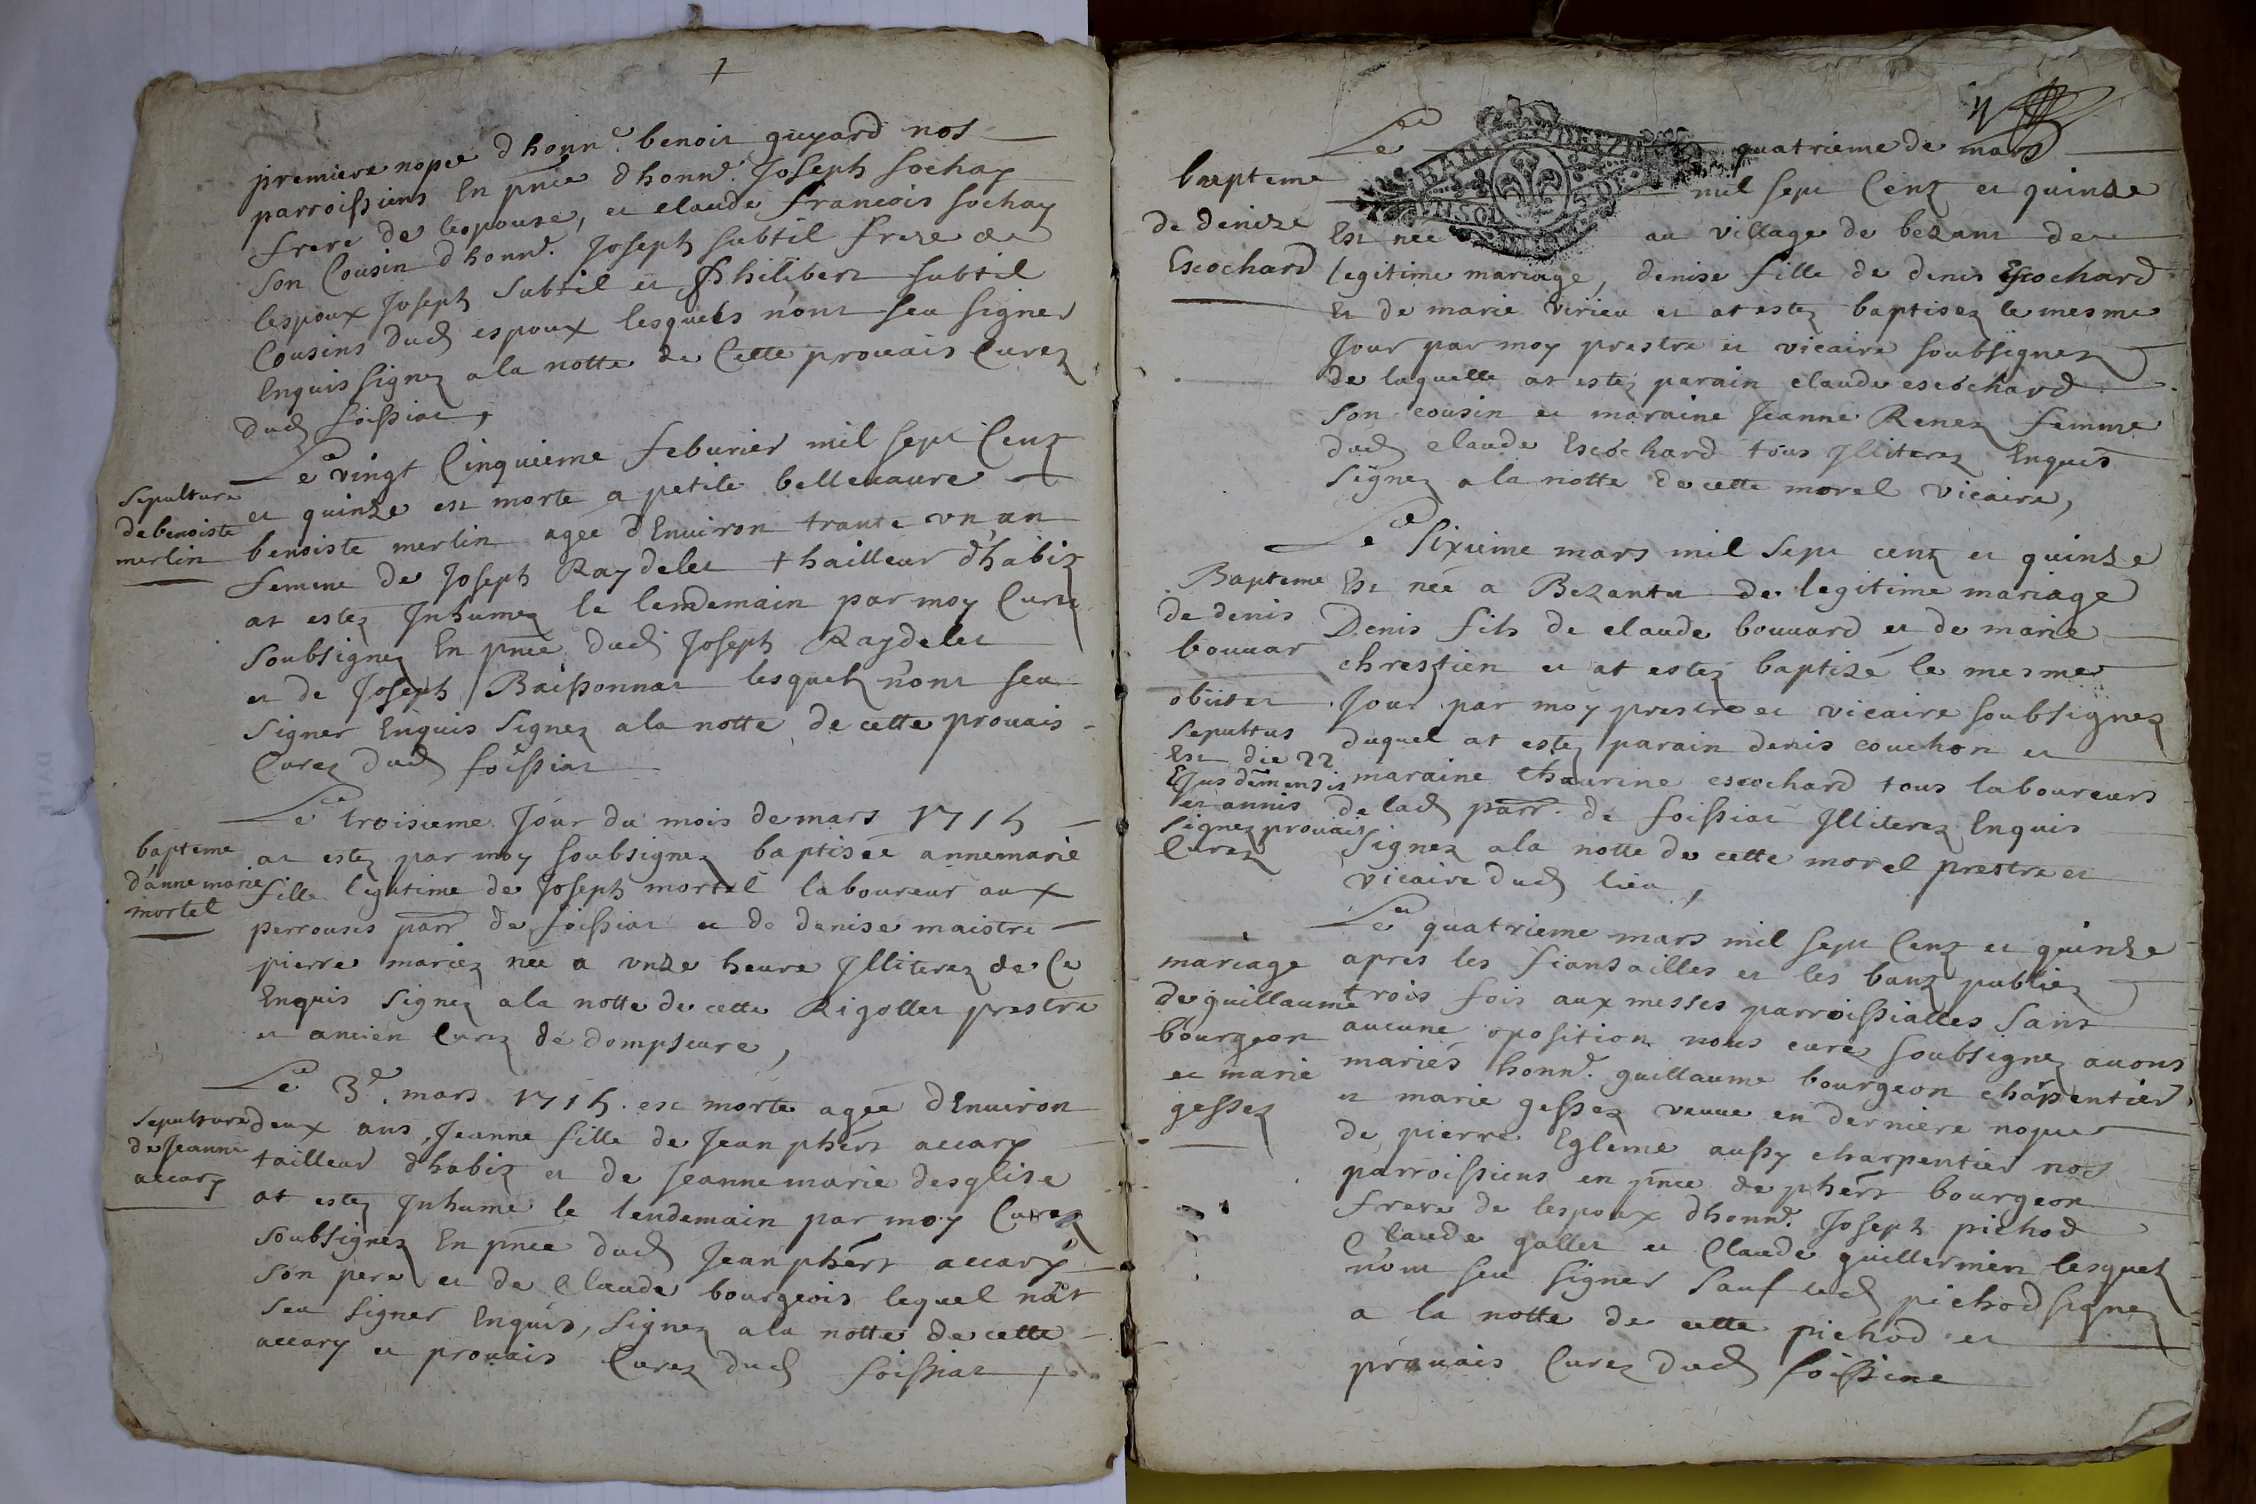 premiere nopce d honn.e benoit guyard nos
parroissiens En pnce d honn.e Joseph sochay
frere de lespouse, et claude francois sochay
son Cousin d honn.e Joseph subtil frere de
lespoux Joseph subtil et Philibert subtil
Cousins dud espoux lesquels n'ont sceu signer
Enquis signez a la notte de Cette prouais Curez
dud foissiat,
Sepulture
de benoiste
merlin
Le vingt Cinquieme feburier mil sept Cent
et quinze est morte a petite bellevaure
benoiste merlin agée d'Enuiron trante vn an
femme de Joseph Raydelet thailleur d'habit
at estez Inhumez le lendemain par moy Curez
soubsignez En pnce dud Joseph Raydelet
et de Joseph Baissonnat lesquels n'ont sceu
signer Enquis signez a la notte de cette prouais
Curez dud foissiat
bapteme
d'anne marie
mortel
Le troisieme Jour du mois de mars 1715
at estez par moy soubsignez baptisée annemarie
fille legitime de Joseph mortel laboureur aux
perrouses parr de foissiat et de denise maistre
pierre mariez née a vnze heure Illiterez de Ce
Enquis signez a la notte de cette Rigollet prestre
et ancien Curez de dompseure,
Sepulture
de Jeanne
accary
Le 3e mars 1715 est morte agée d'Enuiron
deux ans, Jeanne fille de Jean phert accary
tailleur d'habit et de Jeanne marie desglise
at estez Inhumé le lendemain par moy Curez
soubsignez En pnce dud Jean phert accary
son pere et de Claude bourgeois lequel nat
seu signer Enquis, signez a la notte de cette
accary et prouais Curez dud foissiat,
bapteme
de denize
Escochard
Le quatrieme de mars
mil sept Cent et quinze
Est née au village de bezant de
legitime mariage, denise fille de denis Escochard
Et de marie Virieu et at estez baptisez le mesme
Jour par moy prestre et vicaire soubsignez
de laquelle at estez parain claude escochard
son cousin et maraine Jeanne Renez femme
dud claude Escochard tous Illiterez Enquis
signez a la notte de cette morel vicaire,
Bapteme
de denis
bouuar
obiit et
sepultus
Est die 22
Ejusdem mensis
et annis
signez prouais
Curez
Le sixieme mars mil sept cent et quinze
Est née a Bezantu de legitime mariage
Denis fils de claude bouuard et de marie
chrestien et at estez baptizé le mesme
Jour par moy prestre et vicaire soubsignez
duquel at estez parain denis couchon et
maraine thaurine escochard tous laboureurs
de lad parr. de foissiat Illiterez Enquis
signez a la notte de cette morel prestre et
vicaire dud lieu,
mariage
de guillaume
bourgeon
et marie
gessez
Le quatrieme mars mil sept Cent et quinze
apres les fiansailles et les banz publiez
trois fois aux messes parroissialles sans
aucune oposition nous curez soubsignez auons
mariés honn.e guillaume bourgeon charpentier
et marie gessez veuue en derniere nopce
de pierre Egleme aussy charpentier nos
parroissiens en pnce de phert bourgeon
frere de lespoux d'honn.e Joseph pichod
Claude gallet et Claude guillermin lesquels
n'ont seu signer sauf led pichod signez
a la notte de cette pichod et
prouais Curez dud foissiat